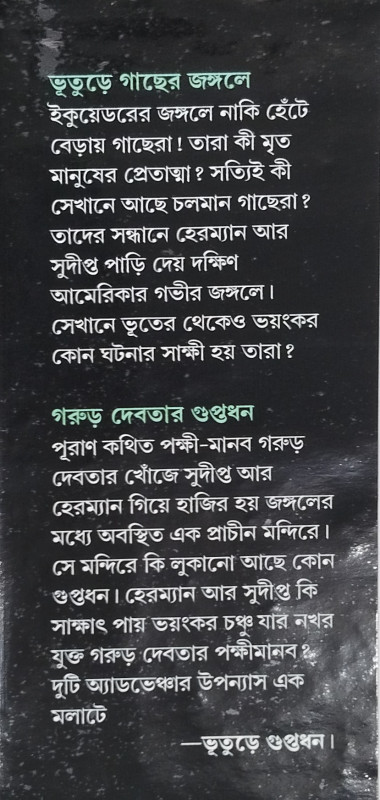 ভূতুড়ে গাছের জঙ্গলে
ইকুয়েডরের জঙ্গলে নাকি হেঁটে
বেড়ায় গাছেরা! তারা কী মৃত
মানুষের প্রেতাত্মা? সত্যিই কী
সেখানে আছে চলমান গাছেরা?
তাদের সন্ধানে হেরম্যান আর
সুদীপ্ত পাড়ি দেয় দক্ষিণ
আমেরিকার গভীর জঙ্গলে।
সেখানে ভূতের থেকেও ভয়ংকর
কোন ঘটনার সাক্ষী হয় তারা?
গরুড় দেবতার গুপ্তধন
পূরাণ কথিত পক্ষী-মানব গরুড়
দেবতার খোঁজে সুদীপ্ত আর
হেরম্যান গিয়ে হাজির হয় জঙ্গলের
মধ্যে অবস্থিত এক প্রাচীন মন্দিরে।
সে মন্দিরে কি লুকানো আছে কোন
গুপ্তধন। হেরম্যান আর সুদীপ্ত কি
সাক্ষাৎ পায় ভয়ংকর চঞ্চু যার নখর
যুক্ত গরুড় দেবতার পক্ষীমানব?
দুটি অ্যাডভেঞ্চার উপন্যাস এক
মলাটে
—ভূতুড়ে গুপ্তধন।